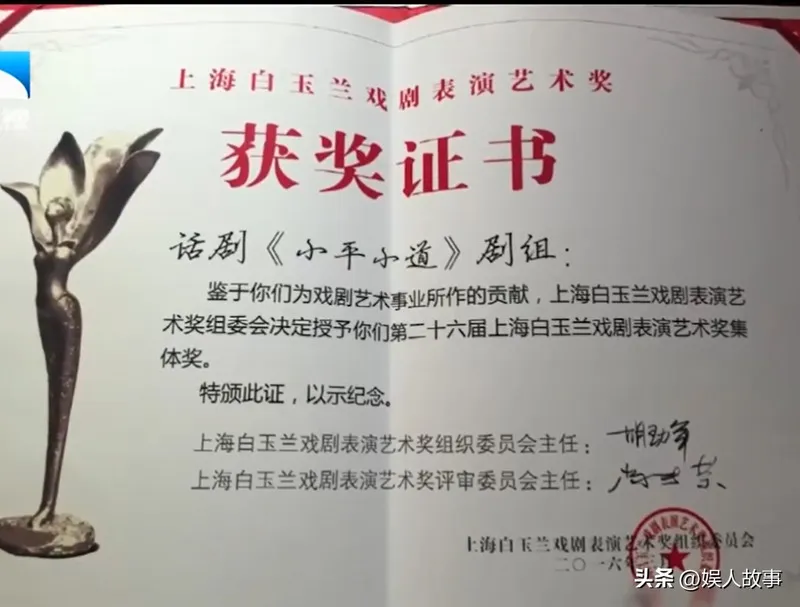 上海白玉兰戏剧表演艺术奖
获奖证书
话剧《小平小道》剧组：
鉴于你们为戏剧艺术事业所作的贡献，上海白玉兰戏剧表演艺
术奖组委会决定授予你们第二十六届上海白玉兰戏剧表演艺术奖集
体奖。
特颁此证，以示纪念。
上海白玉兰戏剧表演艺术奖组织委员会主任：
上海白玉兰戏剧表演艺术奖评审委员会主任：
上海白玉兰戏剧表演艺术奖组织委员会
二〇一六年
头条 @娱人故事